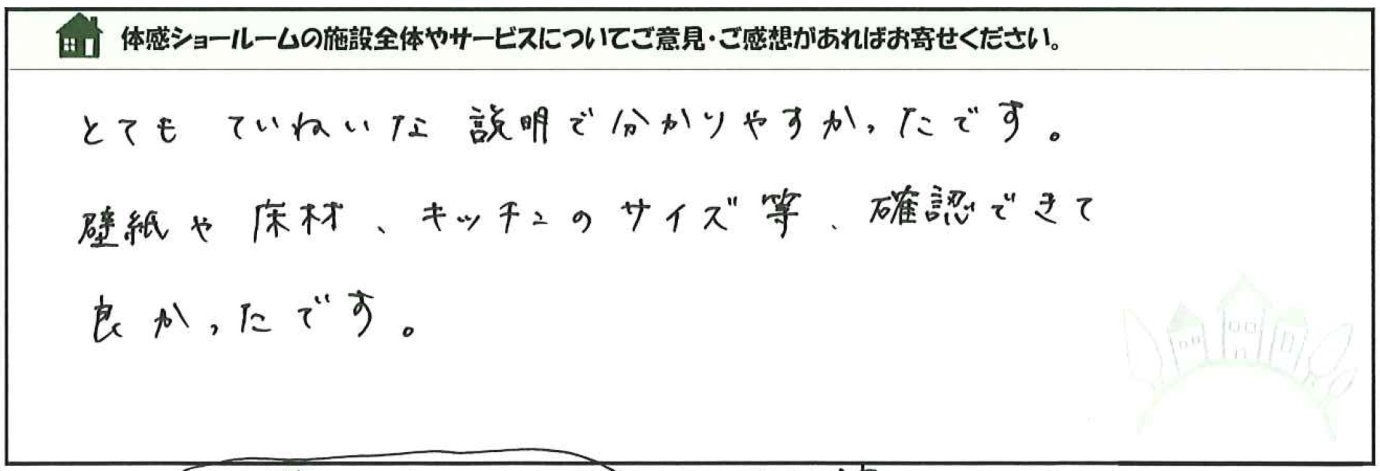 体感ショールームの施設全体やサービスについてご意見・ご感想があればお寄せください。
とても ていねいな 説明で分かりやすかったです。
壁紙や床材、キッチンのサイズ等、確認できて
良かったです。